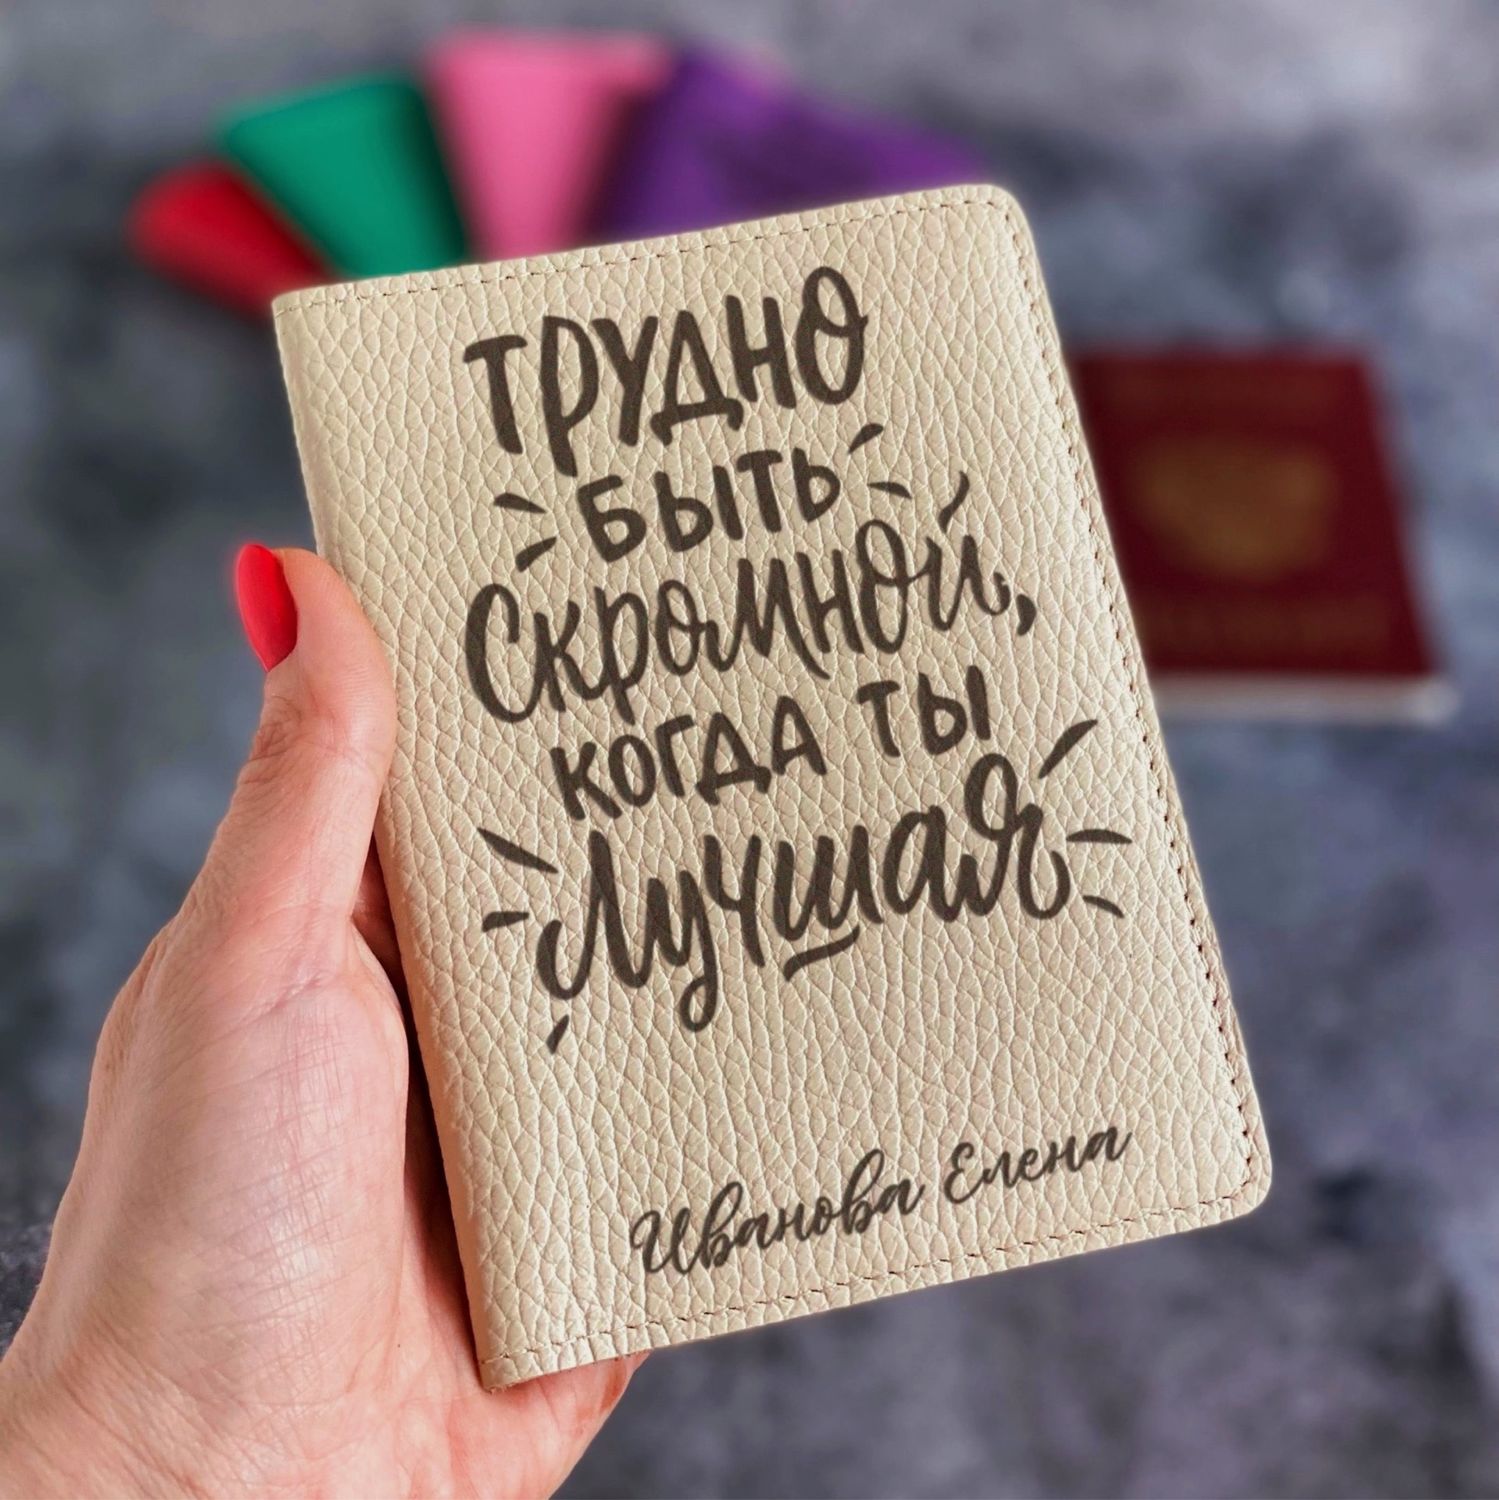 ТРУДНО
БЫТЬ
Скромной,
когда ты
Лучшая
Иванова Елена